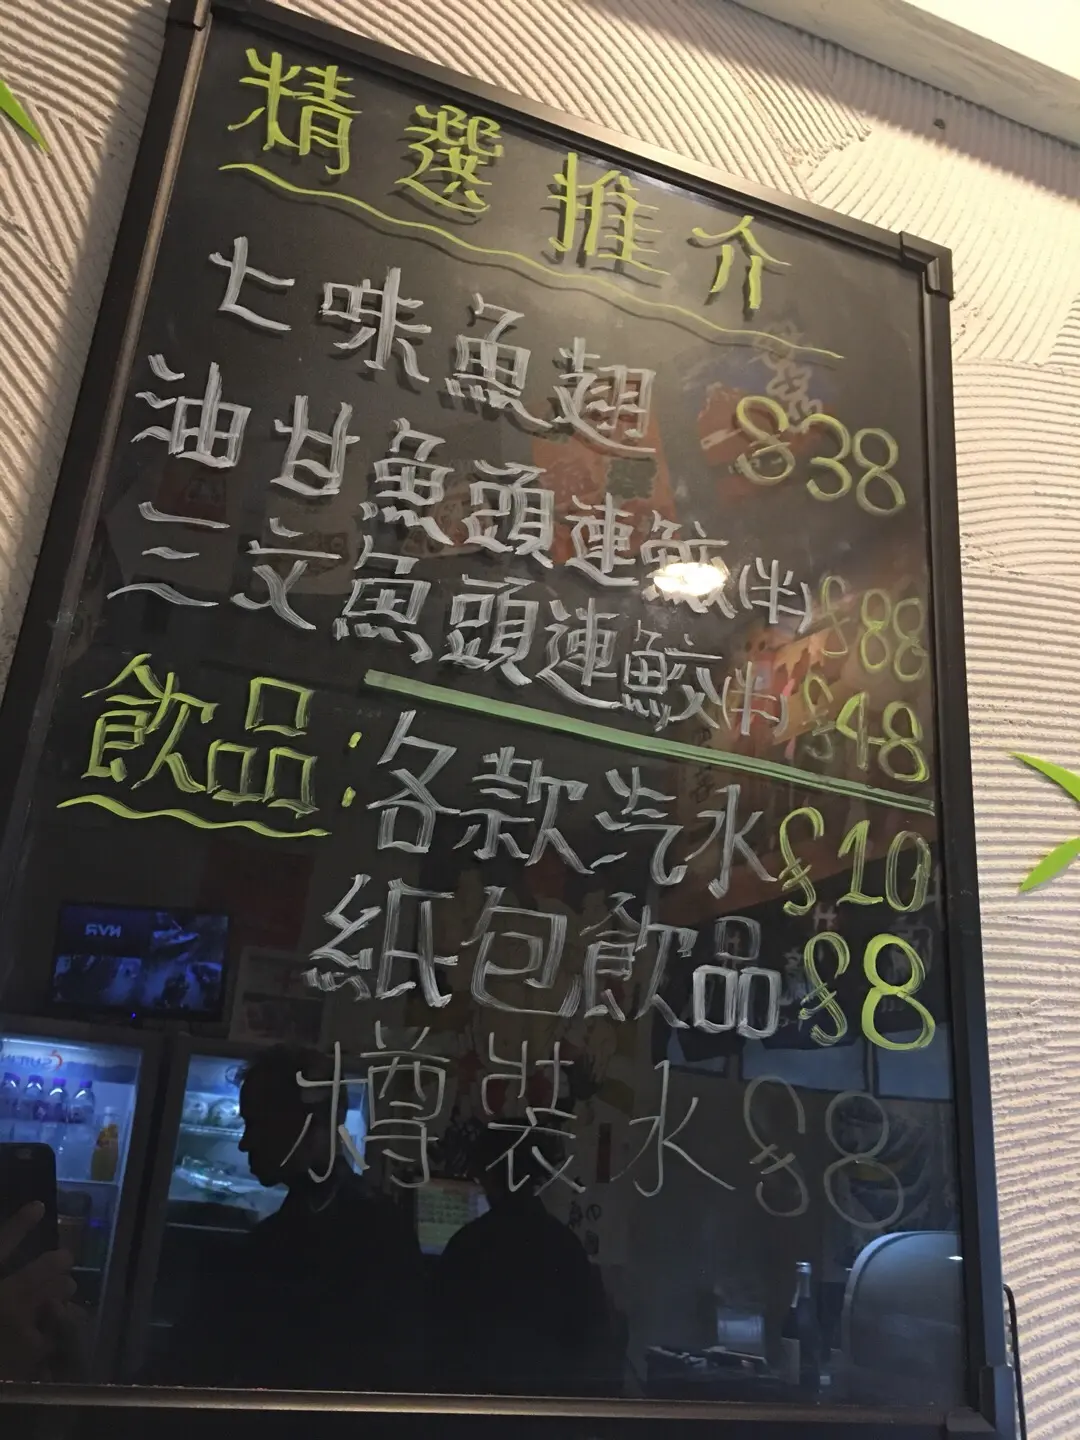 精選推介
七味魚翅 $38
油甘魚頭連鮫(半) $88
三文魚頭連鮫(半) $48
飲品：各款汽水 $10
紙包飲品 $8
樽裝水 $8
NVR